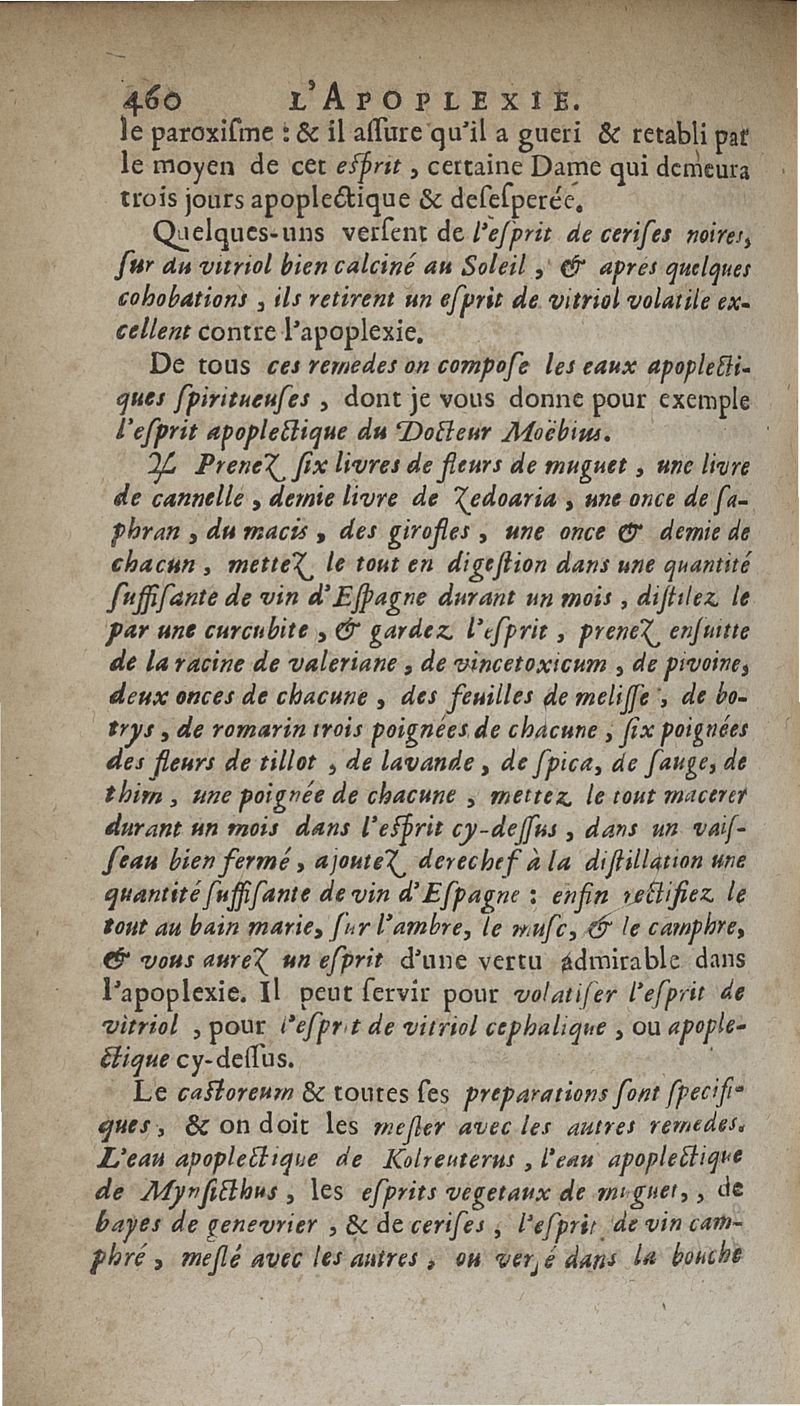 460 L'APOPLEXIE.
le paroxiſme : & il aſſure qu'il a gueri & retabli par
le moyen de cet eſprit , certaine Dame qui demeura
trois jours apoplectique & deſeſperée.
Quelques-uns verſent de l'eſprit de ceriſes noires,
ſur du vitriol bien calciné au Soleil , & aprés quelques
cohobations , ils retirent un eſprit de vitriol volatile ex-
cellent contre l'apoplexie.
De tous ces remedes on compoſe les eaux apoplecti-
ques ſpiritueuſes , dont je vous donne pour exemple
l'eſprit apoplectique du Docteur Moëbius.
℞ Prenez ſix livres de fleurs de muguet , une livre
de cannelle , demie livre de Zedoaria , une once de ſa-
phran , du macis , des girofles , une once & demie de
chacun , mettez le tout en digeſtion dans une quantité
ſuffiſante de vin d'Eſpagne durant un mois , diſtilez le
par une curcubite , & gardez l'eſprit , prenez enſuitte
de la racine de valeriane , de vincetoxicum , de pivoine,
deux onces de chacune , des feuilles de meliſſe , de bo-
trys , de romarin trois poignées de chacune , ſix poignées
des fleurs de tillot , de lavande , de ſpica, de ſauge, de
thim , une poignée de chacune , mettez le tout macerer
durant un mois dans l'eſprit cy-deſſus , dans un vaiſ-
ſeau bien fermé , ajoutez derechef à la diſtillation une
quantité ſuffiſante de vin d'Eſpagne : enfin rectifiez le
tout au bain marie, ſur l'ambre, le muſc, & le camphre,
& vous aurez un eſprit d'une vertu admirable dans
l'apoplexie. Il peut ſervir pour volatiſer l'eſprit de
vitriol , pour l'eſprit de vitriol cephalique , ou apople-
ctique cy-deſſus.
Le caſtoreum & toutes ſes preparations ſont ſpecifi-
ques , & on doit les meſler avec les autres remedes.
L'eau apoplectique de Kolreuterus , l'eau apoplectique
de Mynſicthus , les eſprits vegetaux de muguet, , de
bayes de genevrier , & de ceriſes , l'eſprit de vin cam-
phré , meſlé avec les autres , ou verſé dans la bouche